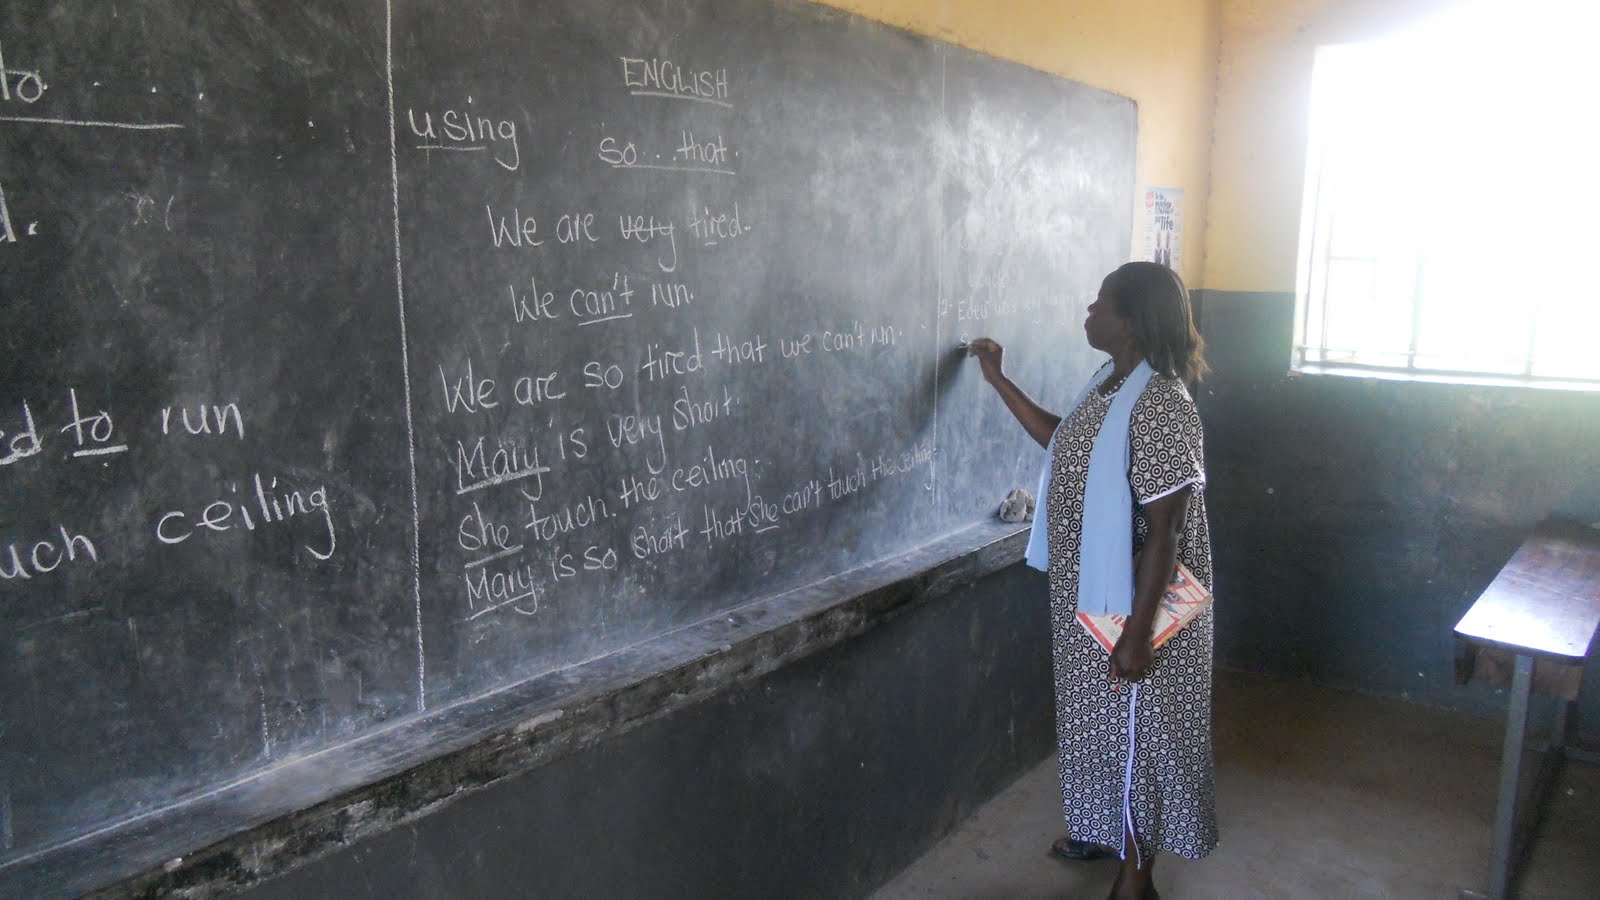 to....
d.
ed to run
uch ceiling
ENGLISH
using so...that.
We are very tired.
We can't run.
We are so tired that we can't run.
Mary is very short.
She touch the ceiling.
Mary is so short that she can't touch the ceiling.
2.
S
life